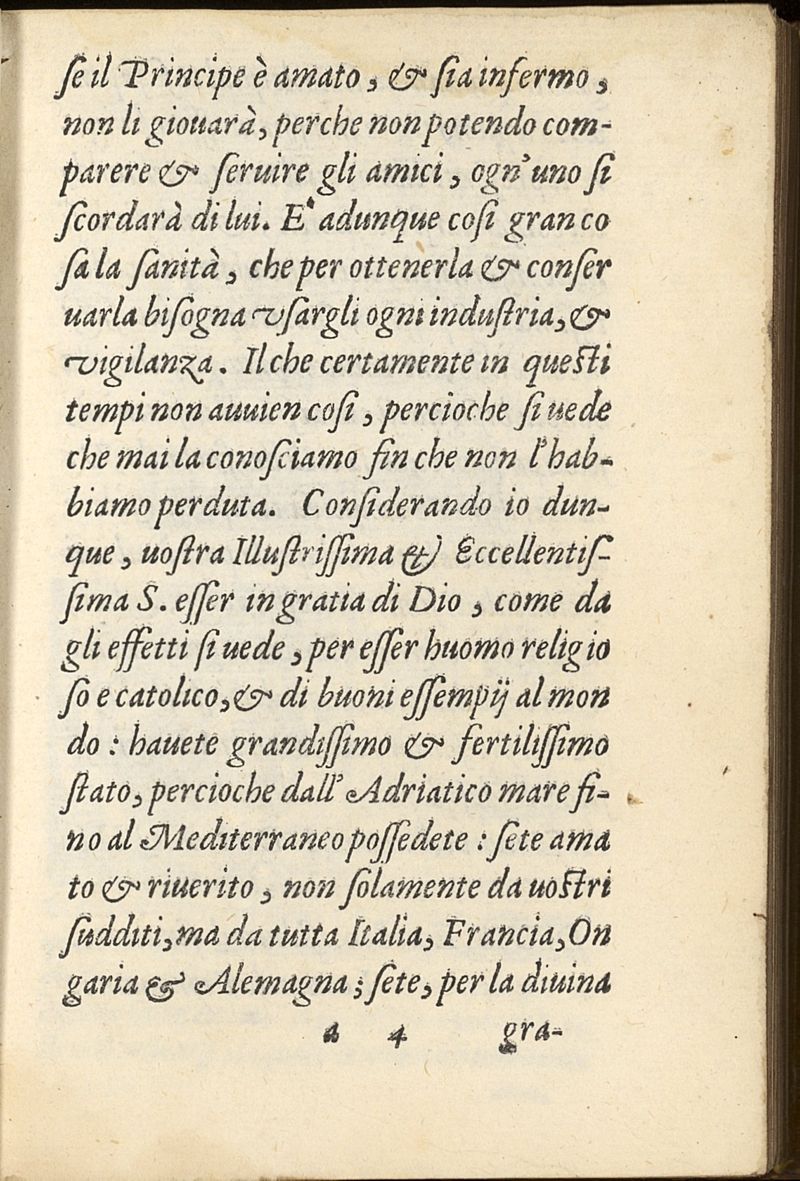 ſe il Principe è amato, & ſia infermo,
non li giouarà, perche non potendo com-
parere & ſeruire gli amici, ogn'uno ſi
ſcordarà di lui. E' adunque coſi gran co
ſa la ſanità, che per ottenerla & conſer
uarla biſogna vſargli ogni induſtria, &
vigilanza. Il che certamente in queſti
tempi non auuien coſi, percioche ſi uede
che mai la conoſciamo fin che non l'hab-
biamo perduta. Conſiderando io dun-
que, uoſtra Illuſtriſſima & Eccellentiſ-
ſima S. eſſer in gratia di Dio, come da
gli effetti ſi uede, per eſſer huomo religio
ſo e catolico, & di buoni eſſempij al mon
do : hauete grandiſſimo & fertiliſſimo
ſtato, percioche dall' Adriatico mare fi-
no al Mediterraneo poſſedete : ſete ama
to & riuerito, non ſolamente da uoſtri
ſudditi, ma da tutta Italia, Francia, On
garia & Alemagna; ſete, per la diuina
a 4 gra-